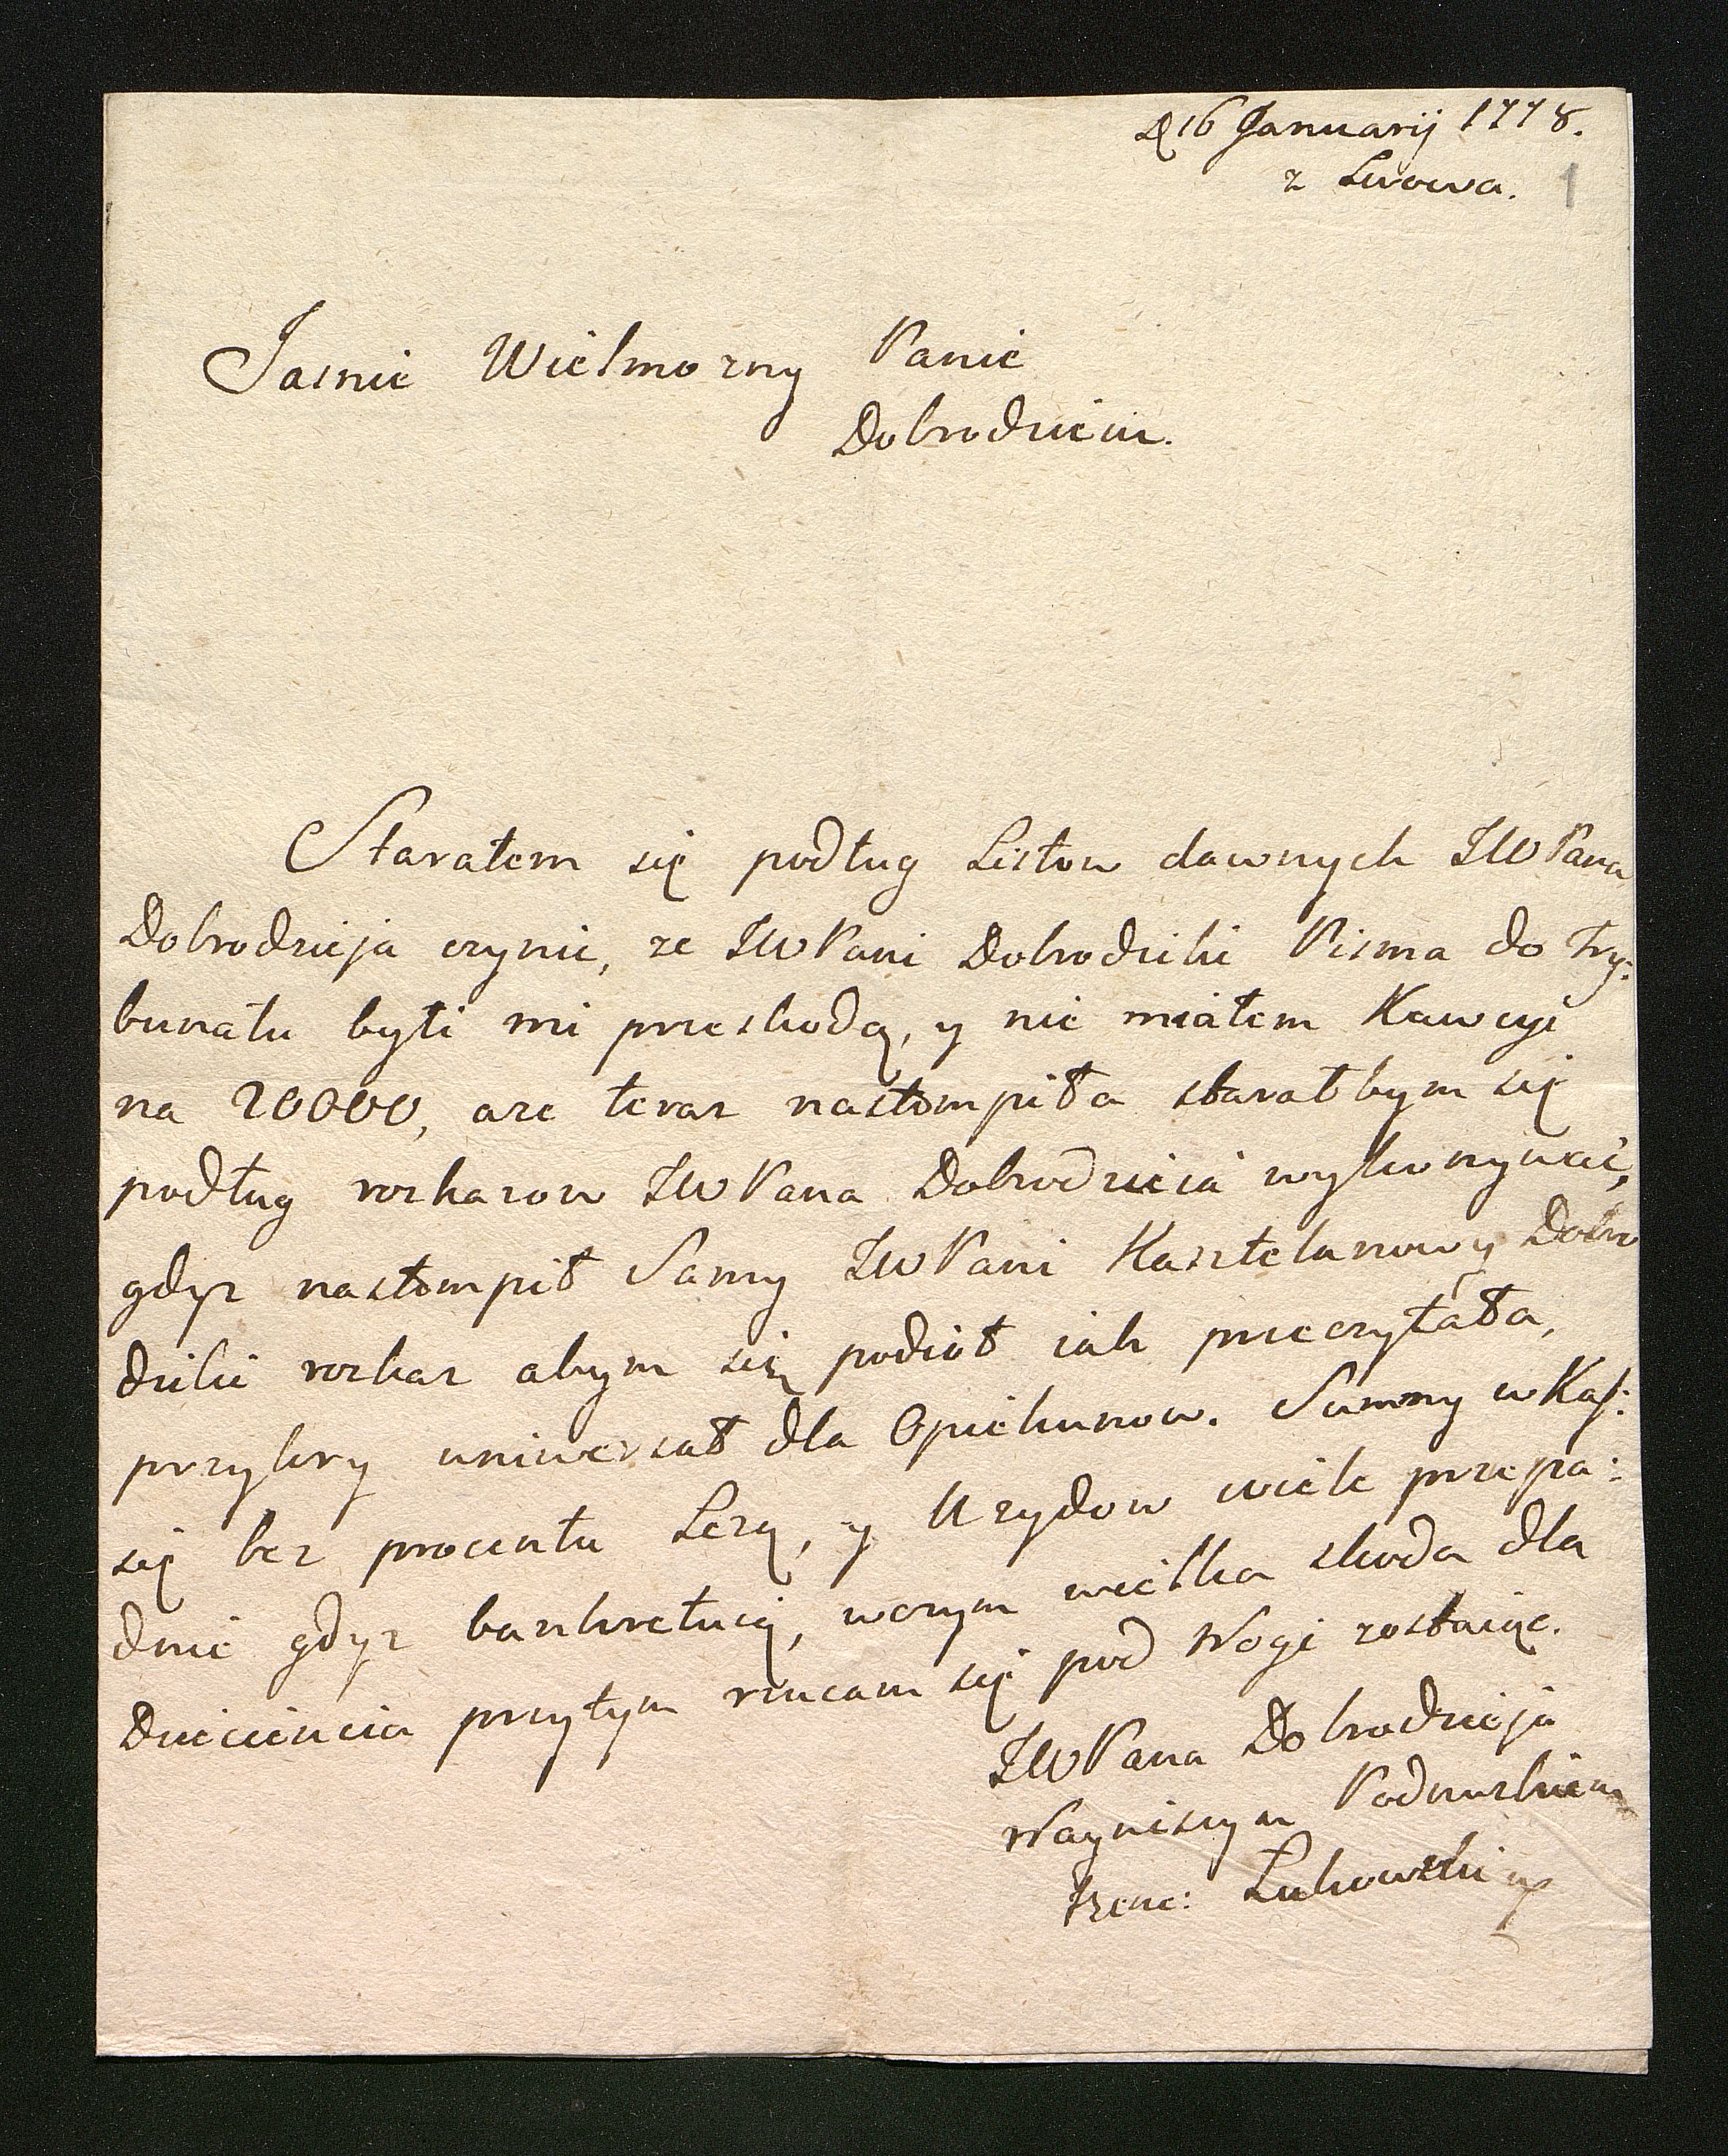 D 16 Januarij 1778.
z Lwowa. 1
Jasnie Wielmozny Panie
Dobrodzieiu.
Starałem się podług Listow dawnych JW Pana
Dobrodzieja czynic, ze JW Pani Dobrodziki Pisma do Try:
bunału byli mi przeskodą, y nie miałem Kawcyi
na 20000, aze teraz nastompiła starałbym się
podług rozkazow JW Pana Dobrodzieia wykonywać,
gdyz nastompił Samy JW Pani Kasztelanowy Dobro
dziki rozkaz abym się podiół iak przeczytała,
przykry uniwersał dla Opiekunow. Summy w Kas:
się bez procentu Lezą, y U Zydow wiele przepa:
dnie gdyz bankretuią, wczym wielka skoda dla
Dzieciencia przytym rzucam się pod Nogi zostaiąc.
JW Pana Dobrodzieja
Nayniszym Podnuzkiem
Łukowski mp